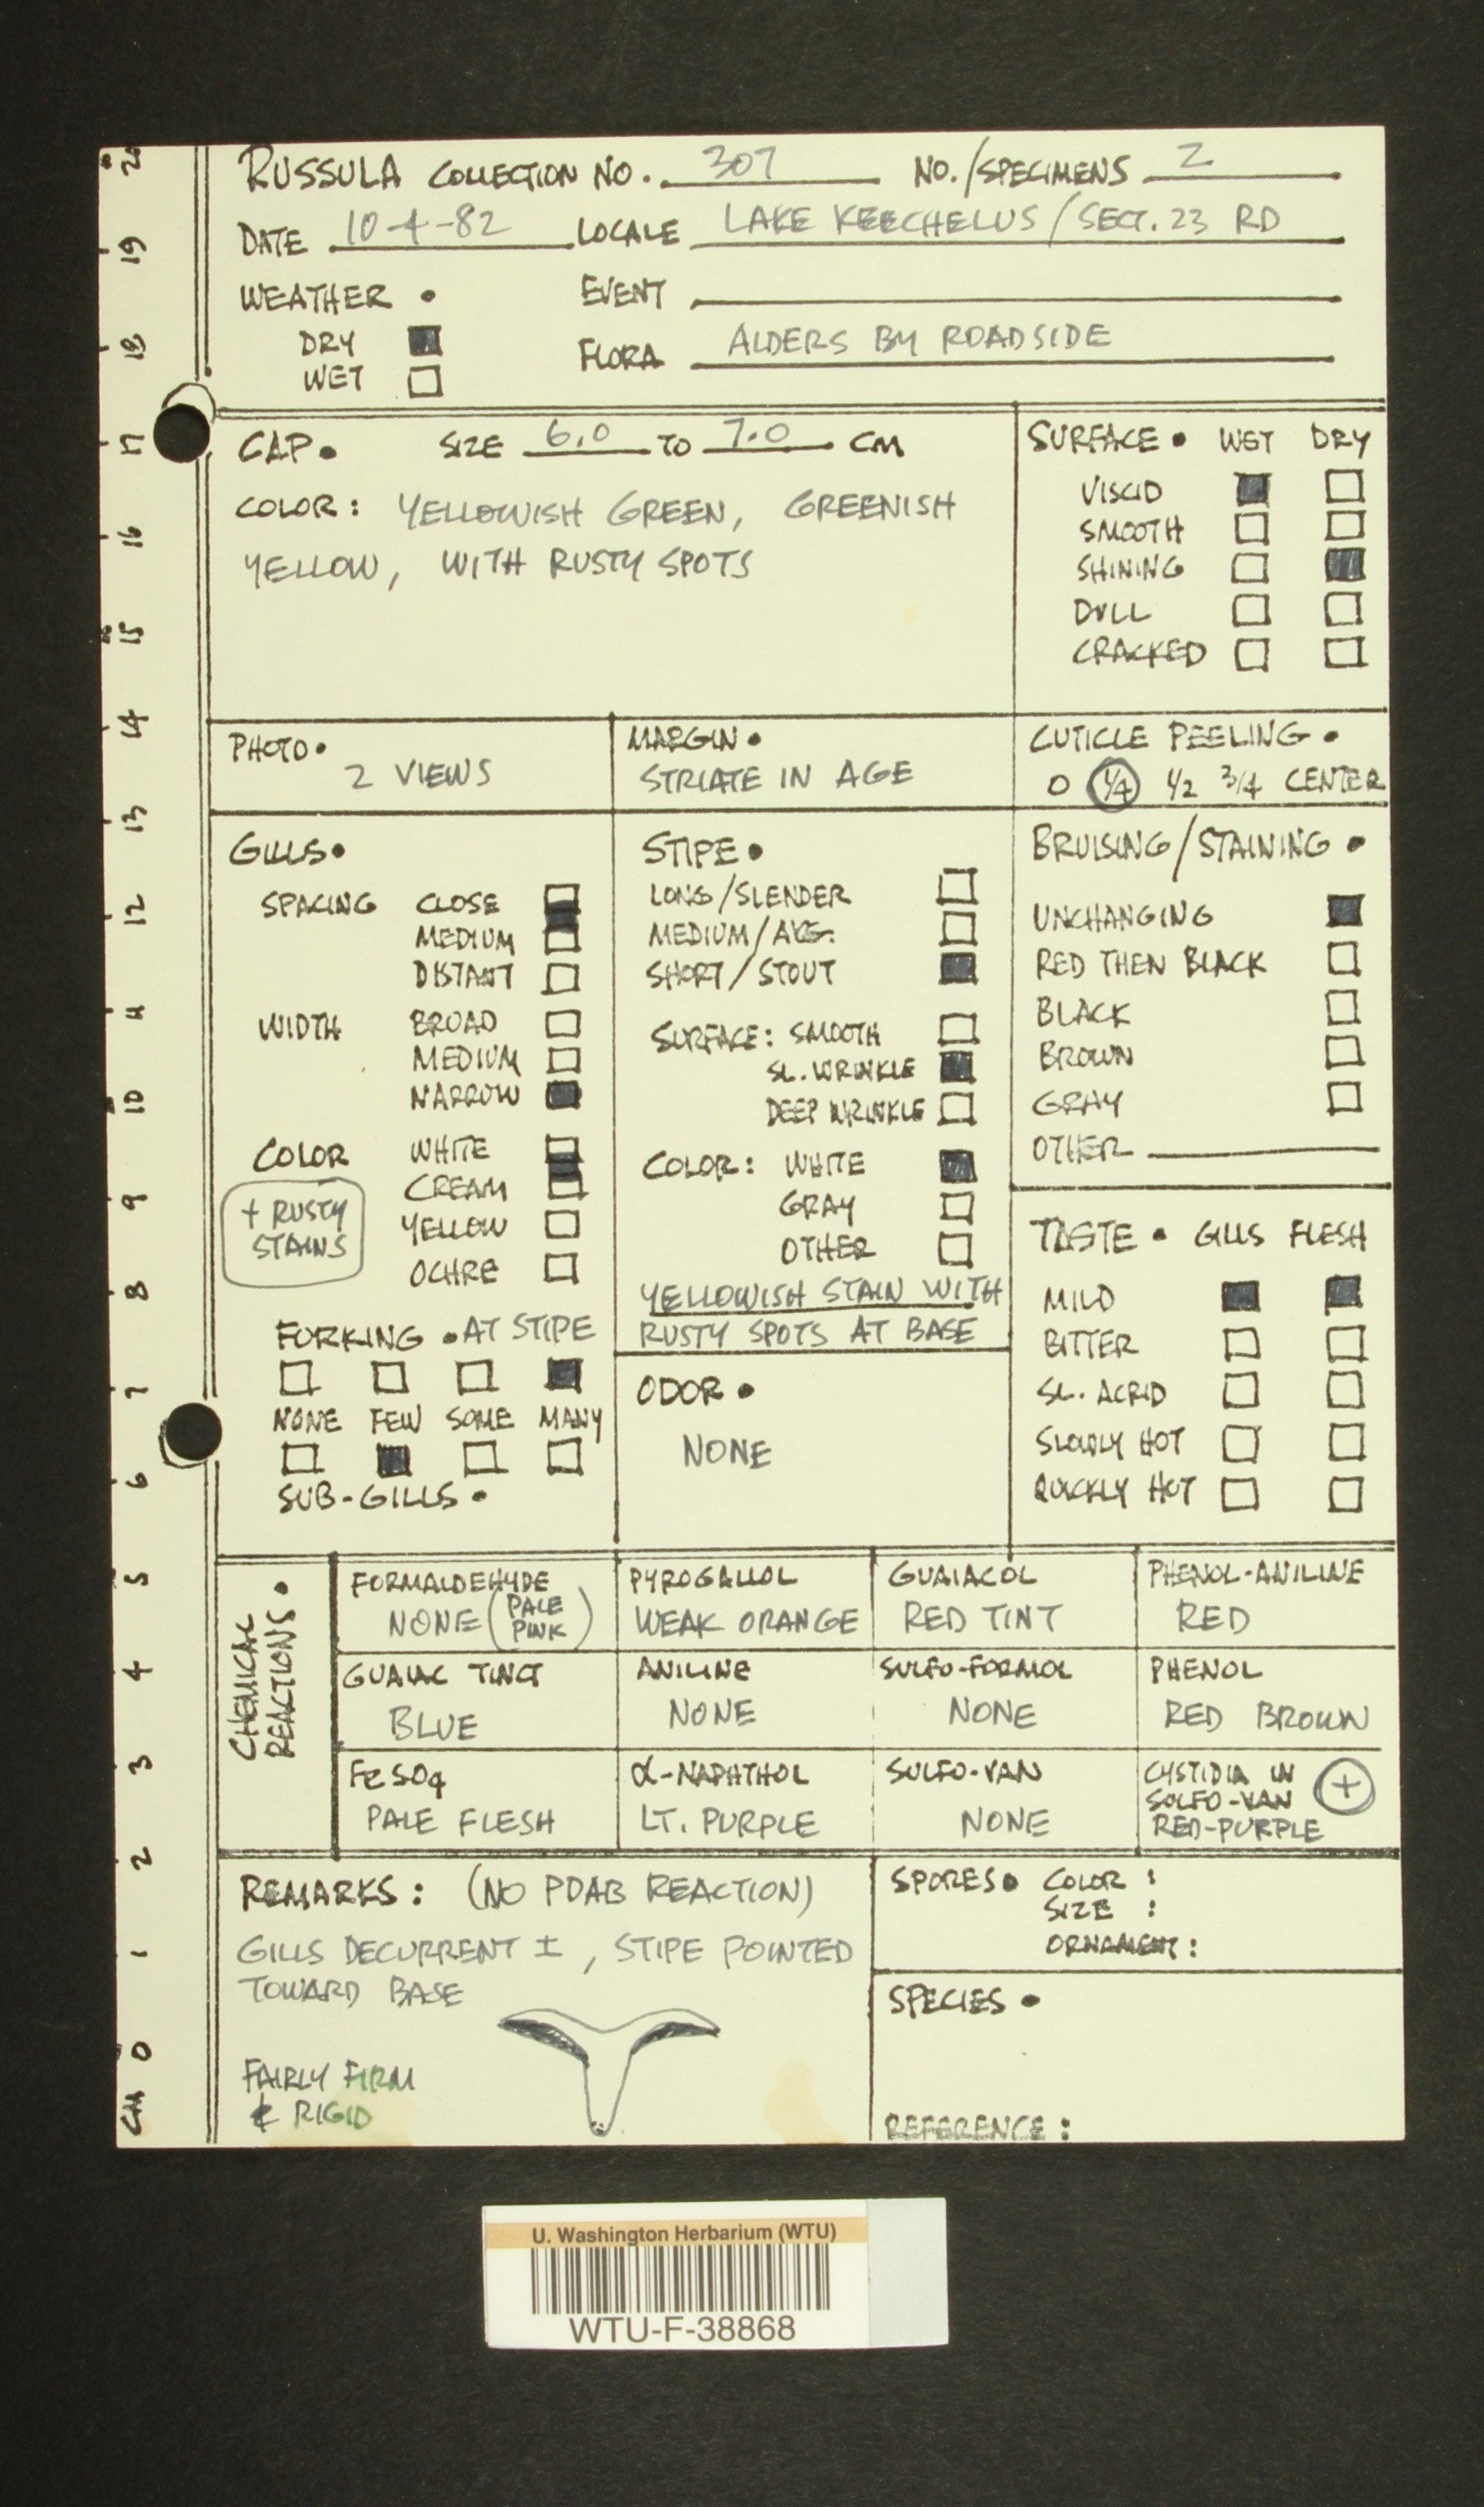 RUSSULA COLLECTION NO. 307 NO./SPECIMENS 2
DATE 10-4-82 LOCALE LAKE KEECHELUS / SECT. 23 RD
WEATHER • EVENT
DRY
FLORA ALDERS BY ROADSIDE
WET
CAP • SIZE 6.0 TO 7.0 CM
COLOR: YELLOWISH GREEN, GREENISH
YELLOW, WITH RUSTY SPOTS
SURFACE • WET DRY
VISCID
SMOOTH
SHINING
DULL
CRACKED
PHOTO •
2 VIEWS
MARGIN •
STRIATE IN AGE
CUTICLE PEELING •
0 1/4 1/2 3/4 CENTER
GILLS •
SPACING CLOSE
MEDIUM
DISTANT
WIDTH BROAD
MEDIUM
NARROW
COLOR WHITE
CREAM
YELLOW
OCHRE
+ RUSTY
STAINS
FORKING • AT STIPE
NONE FEW SOME MANY
SUB-GILLS •
STIPE •
LONG/SLENDER
MEDIUM/AVG.
SHORT/STOUT
SURFACE: SMOOTH
SL. WRINKLE
DEEP WRINKLE
COLOR: WHITE
GRAY
OTHER
YELLOWISH STAIN WITH
RUSTY SPOTS AT BASE
ODOR •
NONE
BRUISING/STAINING •
UNCHANGING
RED THEN BLACK
BLACK
BROWN
GRAY
OTHER
TASTE • GILLS FLESH
MILD
BITTER
SL. ACRID
SLOWLY HOT
QUICKLY HOT
CHEMICAL
REACTIONS •
FORMALDEHYDE
NONE (PALE PINK)
PYROGALLOL
WEAK ORANGE
GUAIACOL
RED TINT
PHENOL-ANILINE
RED
GUAIAC TINCT
BLUE
ANILINE
NONE
SULFO-FORMOL
NONE
PHENOL
RED BROWN
FeSO4
PALE FLESH
α-NAPHTHOL
LT. PURPLE
SULFO-VAN
NONE
CYSTIDIA IN
SULFO-VAN +
RED-PURPLE
REMARKS: (NO PDAB REACTION)
GILLS DECURRENT ±, STIPE POINTED
TOWARD BASE
FAIRLY FIRM
& RIGID
SPORES • COLOR :
SIZE :
ORNAMENT :
SPECIES •
REFERENCE :
20
19
18
17
16
15
14
13
12
11
10
9
8
7
6
5
4
3
2
1
0
CM
U. Washington Herbarium (WTU)
WTU-F-38868